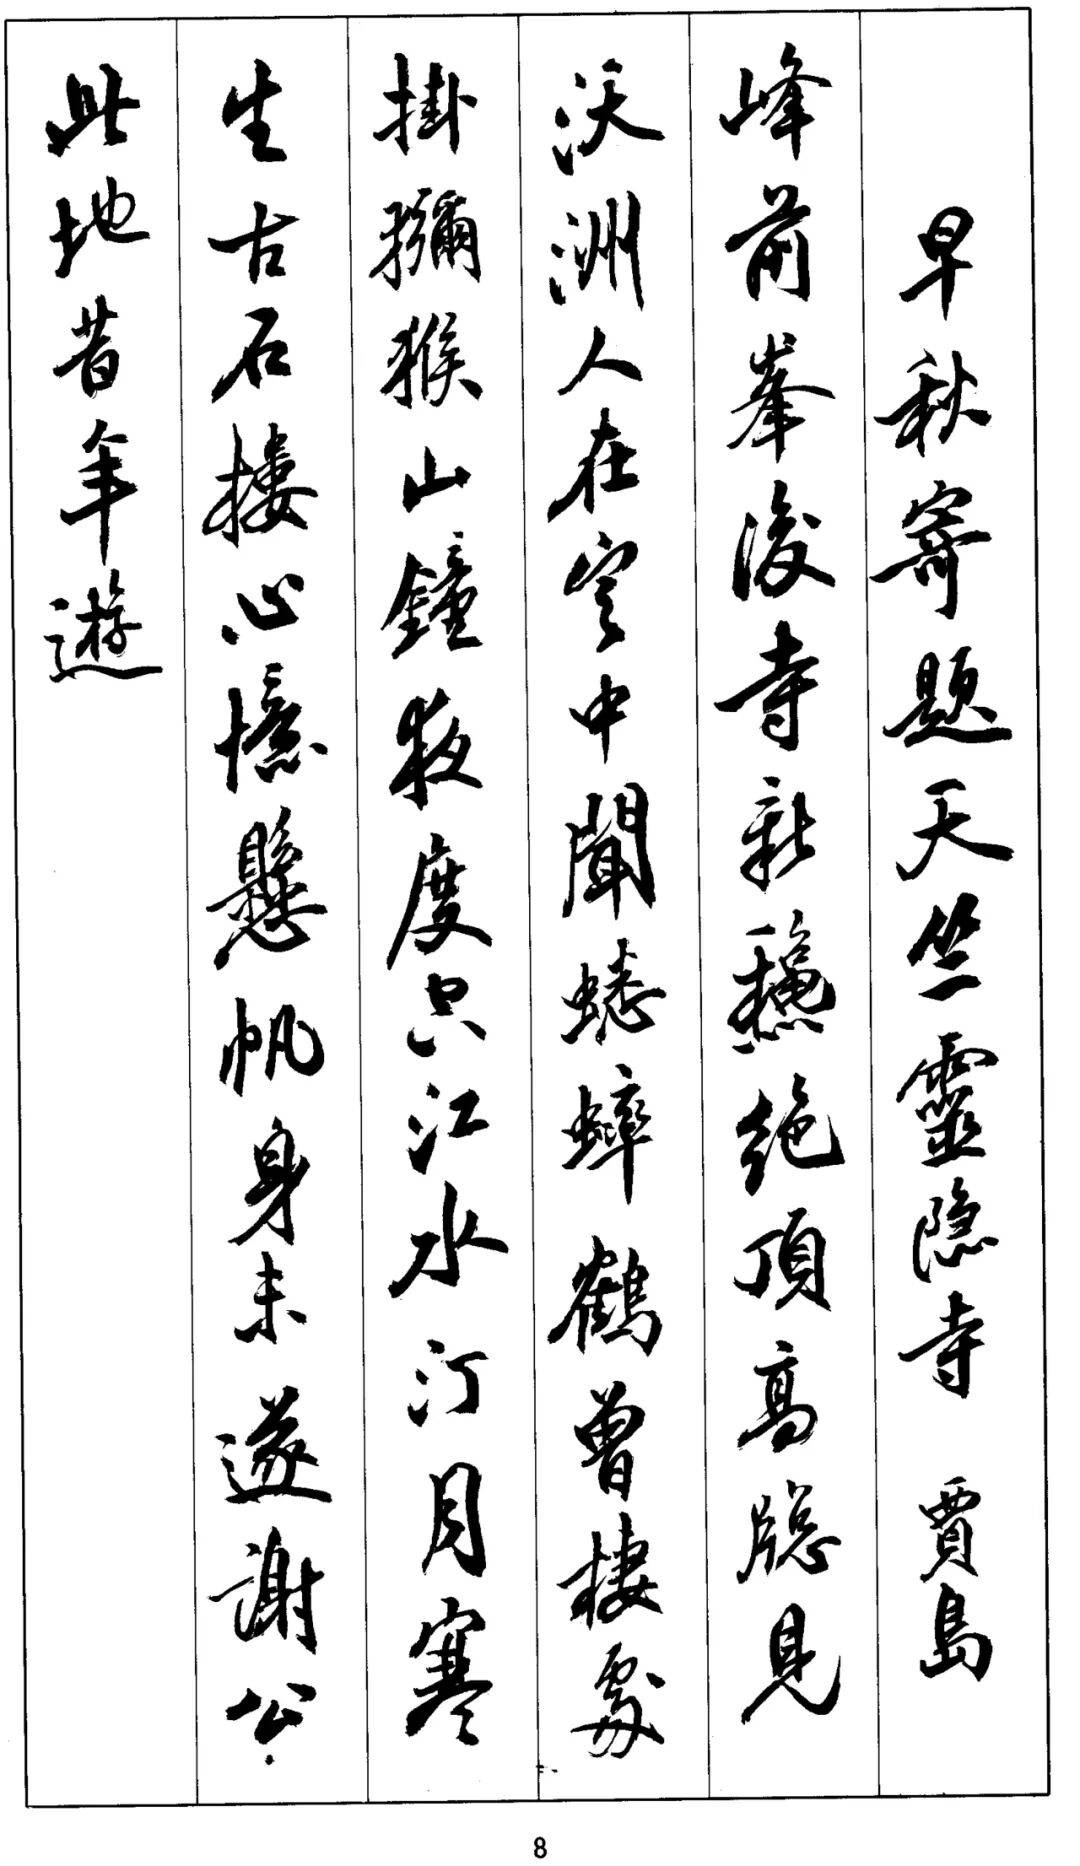 早秋寄題天竺靈隱寺 賈島
峰前峯後寺新穐絶頂高牕見
沃洲人在定中聞蟋蟀鶴曾棲處
掛獼猴山鐘夜度空江水汀月寒
生古石樓心憶懸帆身未遂謝公
此地昔年遊
8